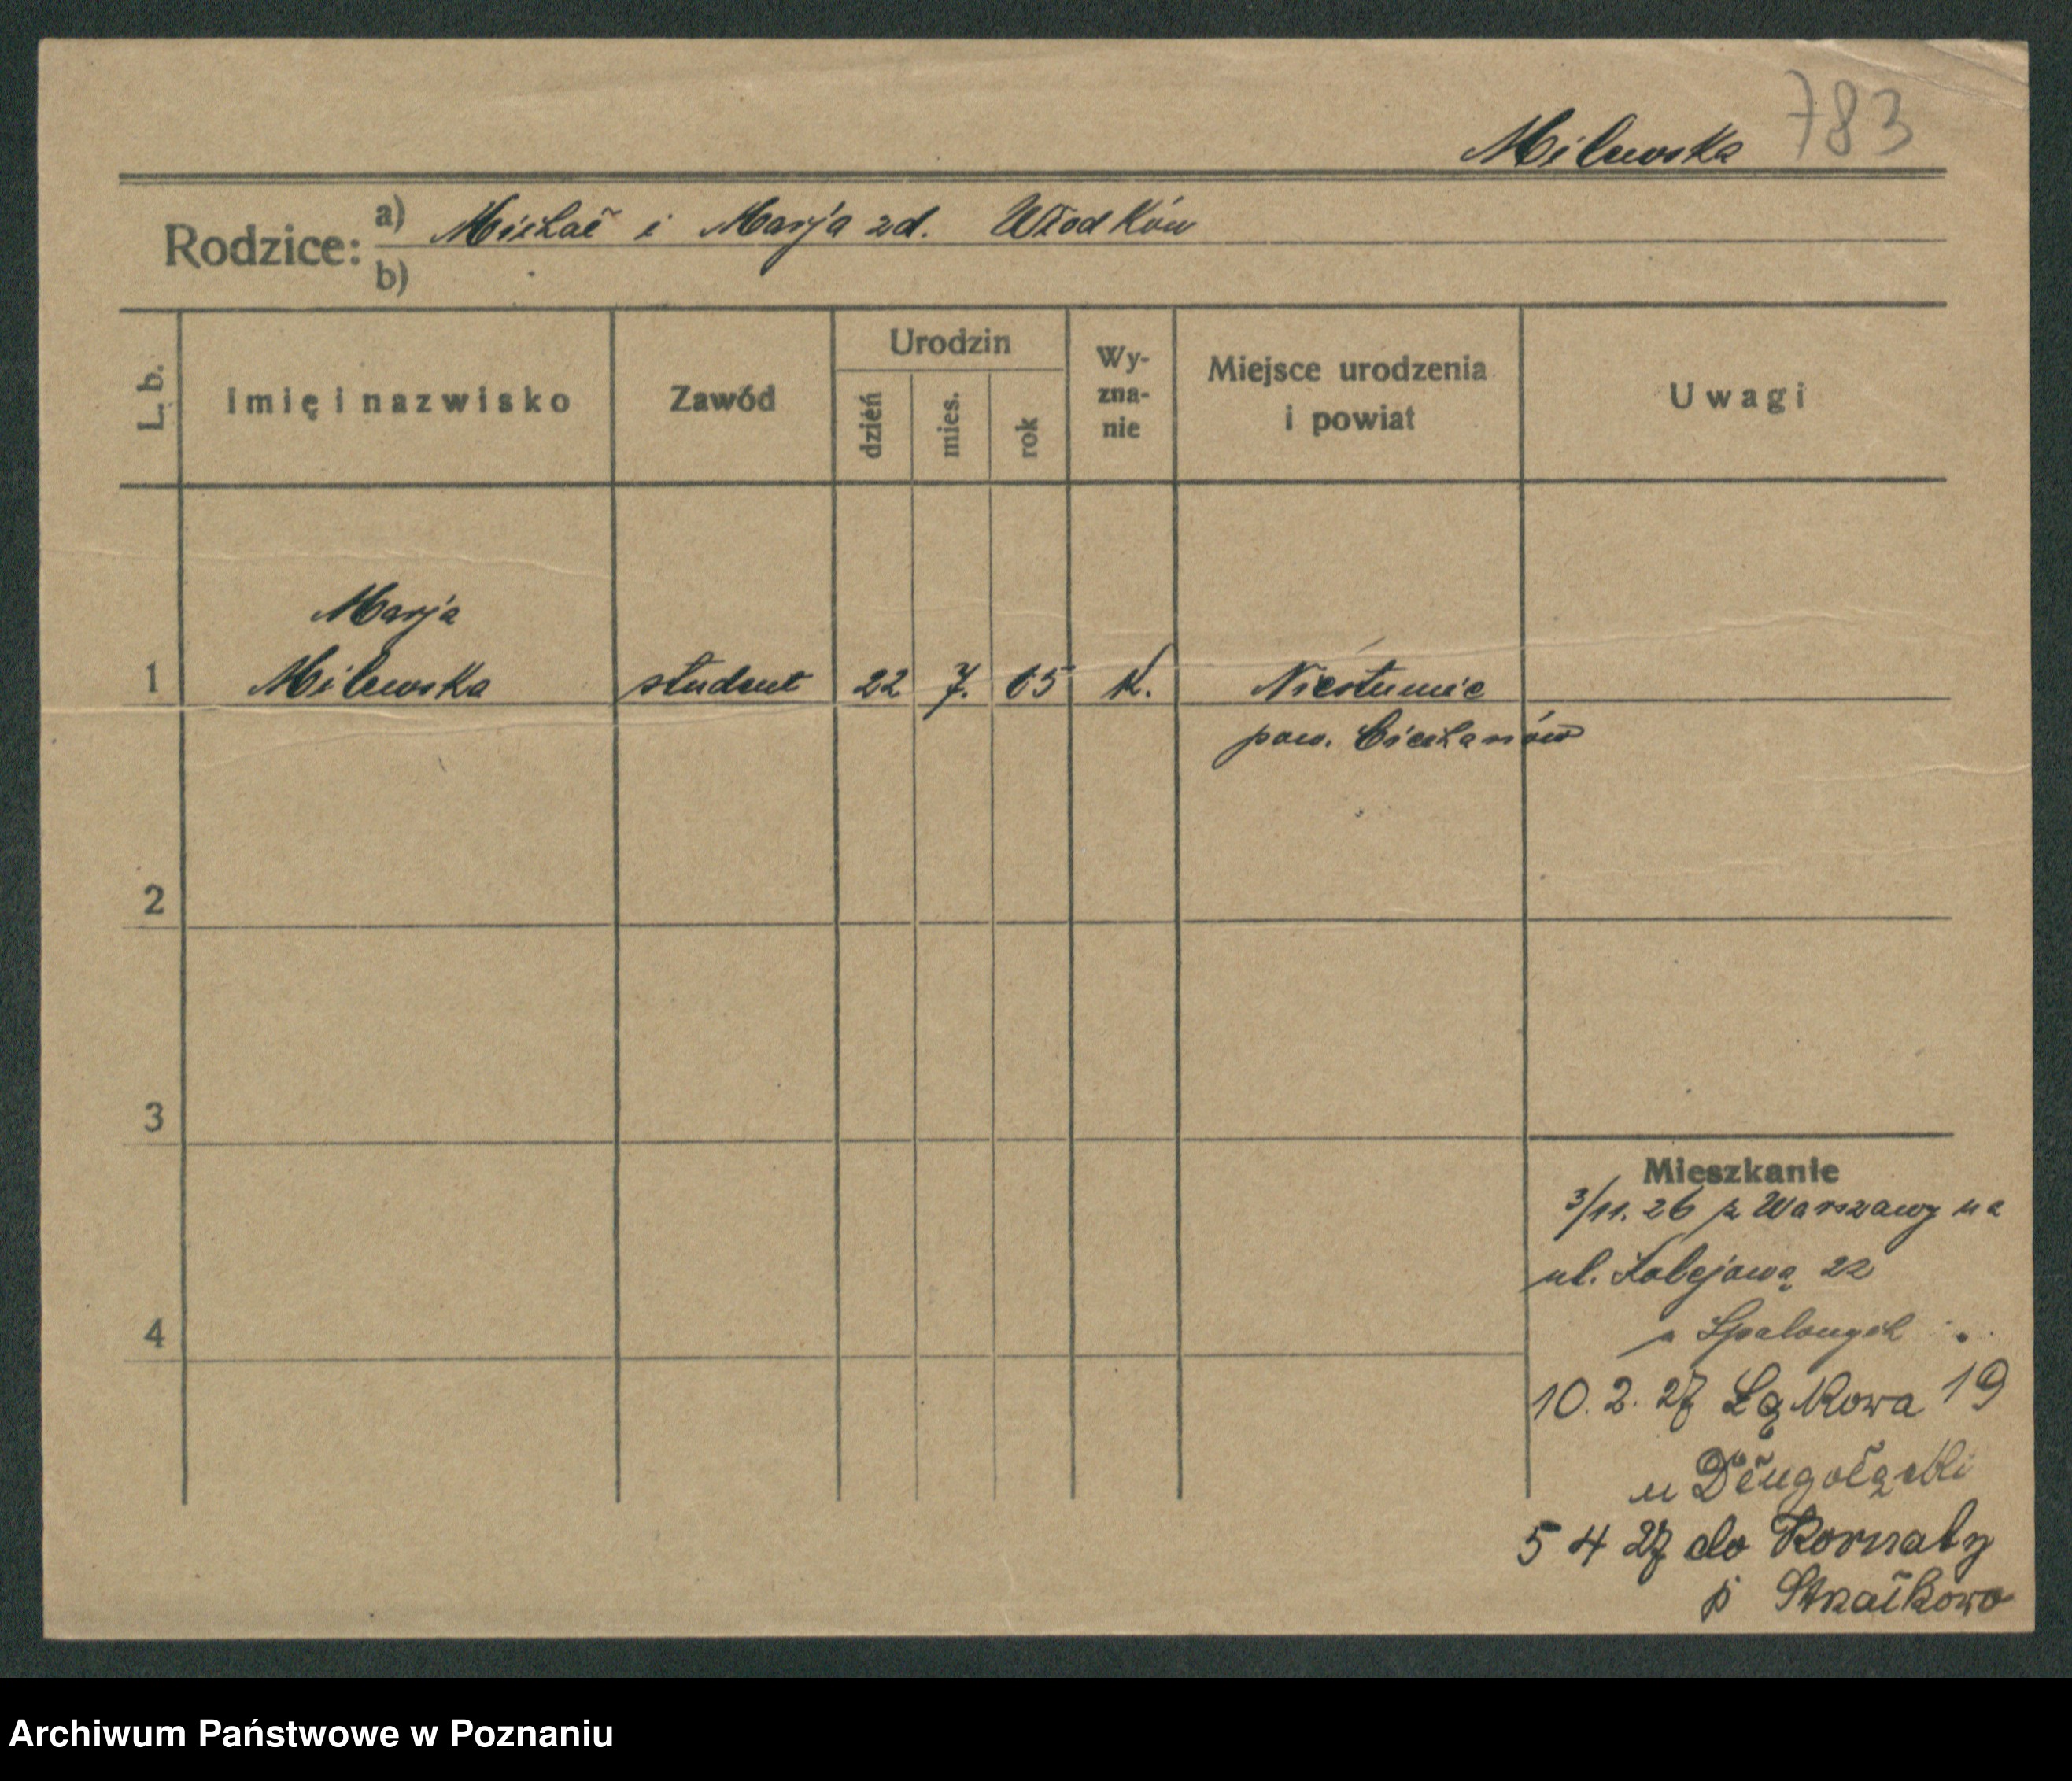 Milewska 783
Rodzice: a) Michał i Marja zd. Włodków
b)
L. b.
Imię i nazwisko
Zawód
Urodzin
dzień
mies.
rok
Wy-
zna-
nie
Miejsce urodzenia
i powiat
Uwagi
Marja
1 Milewska student 22 7. 05 K. Niestumie
pow. Ciechanów
2
3
4
Mieszkanie
3/11. 26 z Warszawy na
ul. Kolejową 22
u
10. 2. 27 Łąkowa 19
u Długołęcki
5 4 27 do Kornaty
p Strzałkowo
Archiwum Państwowe w Poznaniu